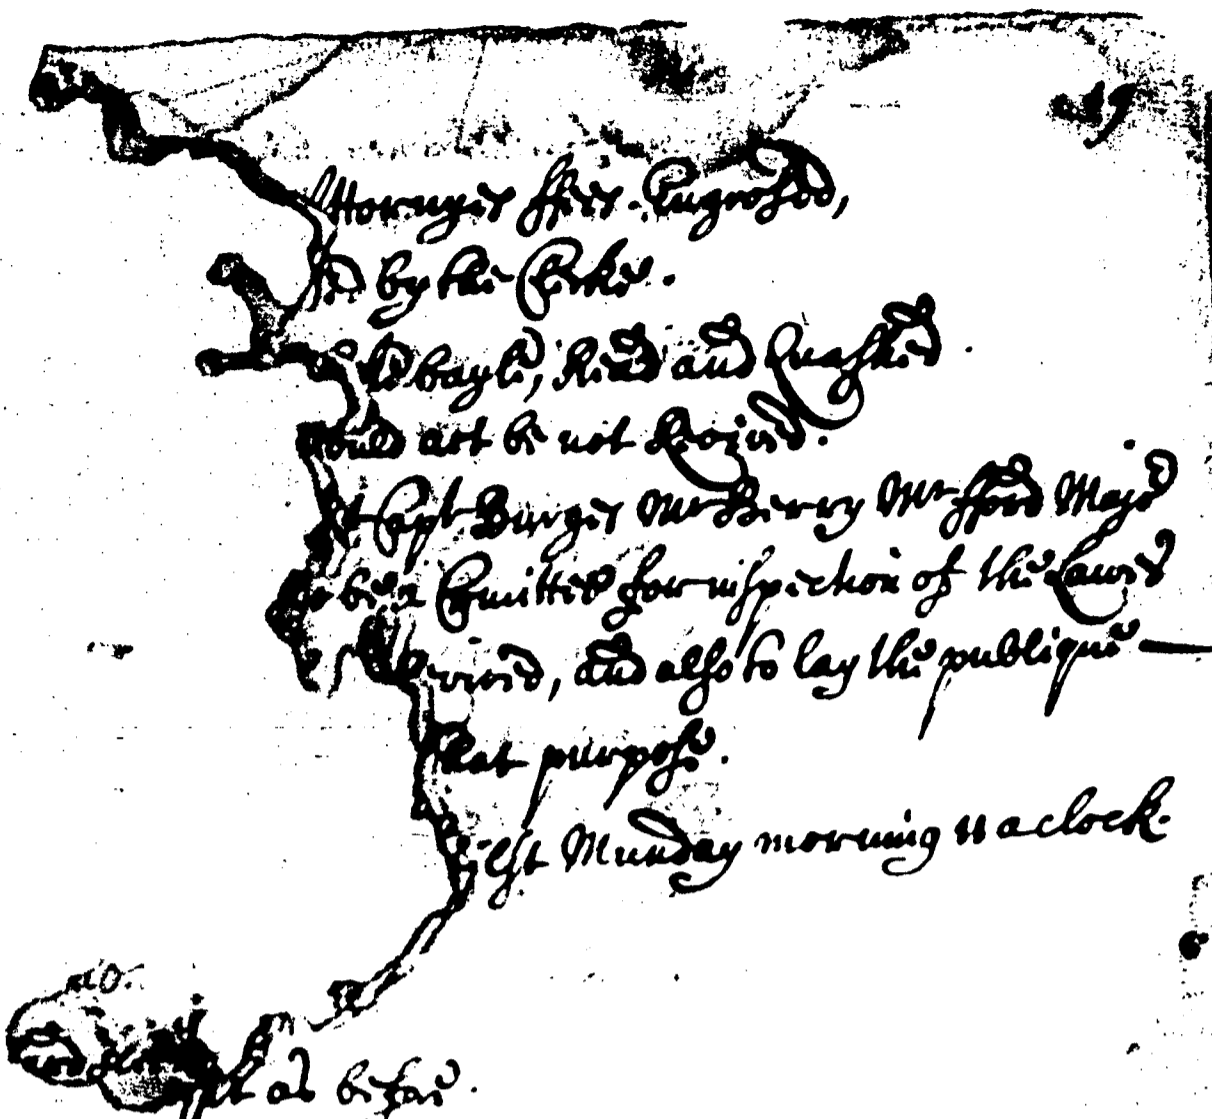 19
Attorneyes ffees. Engrossed,
by the Clerke.
to bayle, Read and Quashed.
would act be not Revived.
Capt Burges Mr Berry Mr fford Majr
to be a Comittee for inspection of the Lawes
revived, and also to lay the publique
that purpose.
till Munday morning 11 a clock.
as before.